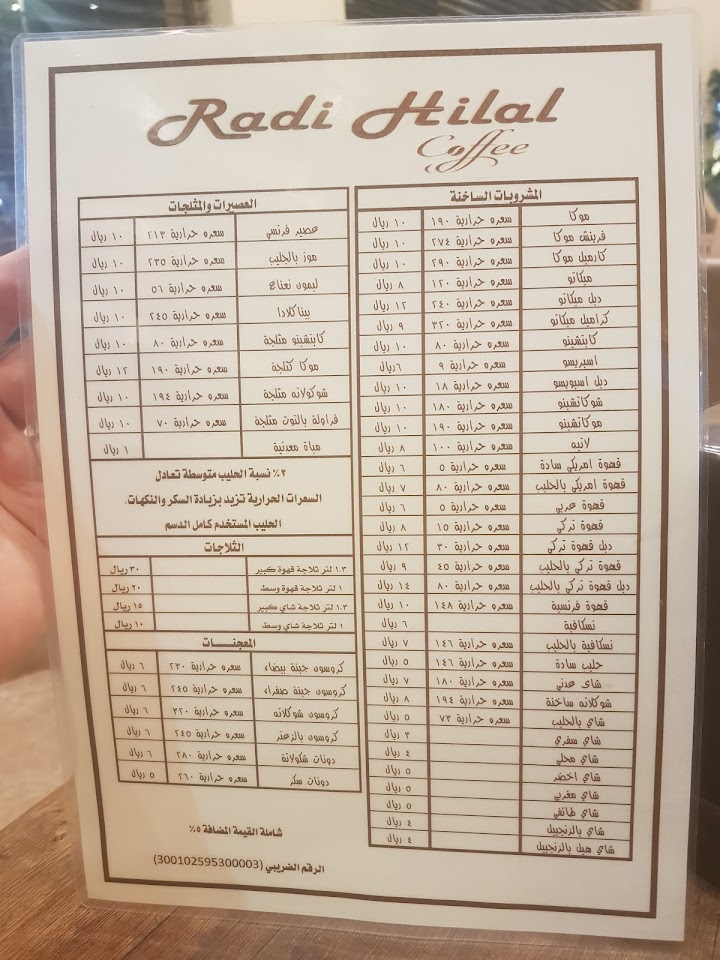 Radi Hilal
Coffee
المشروبات الساخنة
موكا سعره حرارية ١٩٠ ١٠ ريال
فرينش موكا سعره حرارية ٢٧٤ ١٠ ريال
كارميل موكا سعره حرارية ٢٩٠ ١٠ ريال
ميكاتو سعره حرارية ١٢٠ ٨ ريال
دبل ميكاتو سعره حرارية ٢٤٠ ١٢ ريال
كراميل ميكاتو سعره حرارية ٣٢٠ ٩ ريال
كابتشينو سعره حرارية ٨٠ ١٠ ريال
اسبريسو سعره حرارية ٩ ٦ ريال
دبل اسبريسو سعره حرارية ١٨ ١٠ ريال
شوكاتشينو سعره حرارية ١٨٠ ١٠ ريال
موكاتشينو سعره حرارية ١٩٠ ١٠ ريال
لاتيه سعره حرارية ١٠٠ ٨ ريال
قهوة امريكي سادة سعره حرارية ٥ ٦ ريال
قهوة امريكي بالحليب سعره حرارية ٨٠ ٧ ريال
قهوة عربي سعره حرارية ٥ ٦ ريال
قهوة تركي سعره حرارية ١٥ ٨ ريال
دبل قهوة تركي سعره حرارية ٣٠ ١٢ ريال
قهوة تركي بالحليب سعره حرارية ٤٥ ٩ ريال
دبل قهوة تركي بالحليب سعره حرارية ٨٠ ١٤ ريال
قهوة فرنسية سعره حرارية ١٤٨ ١٠ ريال
نسكافية ٦ ريال
نسكافية بالحليب سعره حرارية ١٤٦ ٧ ريال
حليب سادة سعره حرارية ١٤٦ ٥ ريال
شاي عدني سعره حرارية ١٨٠ ٧ ريال
شوكلاته ساخنة سعره حرارية ١٩٤ ٨ ريال
شاي بالحليب سعره حرارية ٧٣ ٥ ريال
شاي سفري ٣ ريال
شاي محلي ٤ ريال
شاي اخضر ٥ ريال
شاي مغربي ٥ ريال
شاي طائفي ٥ ريال
شاي بالزنجبيل ٤ ريال
شاي هيل بالزنجبيل ٤ ريال
العصيرات والمثلجات
عصير فرنسي سعره حرارية ٢١٣ ١٠ ريال
موز بالحليب سعره حرارية ٢٣٥ ١٠ ريال
ليمون نعناع سعره حرارية ٥٦ ١٠ ريال
بيناكلادا سعره حرارية ٢٤٥ ١٠ ريال
كابتشينو مثلجة سعره حرارية ٨٠ ١٠ ريال
موكا كثلجة سعره حرارية ١٩٠ ١٢ ريال
شوكولاته مثلجة سعره حرارية ١٩٤ ١٠ ريال
فراولة بالتوت مثلجة سعره حرارية ٧٠ ١٠ ريال
مياة معدنية ١ ريال
٢٪ نسبة الحليب متوسطة تعادل
السعرات الحرارية تزيد بزيادة السكر والنكهات.
الحليب المستخدم كامل الدسم
الثلاجات
١.٣ لتر ثلاجة قهوة كبير ٣٠ ريال
١ لتر ثلاجة قهوة وسط ٢٠ ريال
١.٣ لتر ثلاجة شاي كبير ١٥ ريال
١ لتر ثلاجة شاي وسط ١٠ ريال
المعجنــات
كروسون جبنة بيضاء سعره حرارية ٢٣٠ ٦ ريال
كروسون جبنة صفراء سعره حرارية ٢٤٥ ٦ ريال
كروسون شوكلاته سعره حرارية ٣٢٠ ٦ ريال
كروسون بالزعتر سعره حرارية ٢٤٠ ٦ ريال
دونات شكولاتة سعره حرارية ٢٨٠ ٦ ريال
دونات سكر سعره حرارية ٢٦٠ ٥ ريال
شاملة القيمة المضافة ٥٪
الرقم الضريبي (300102595300003)